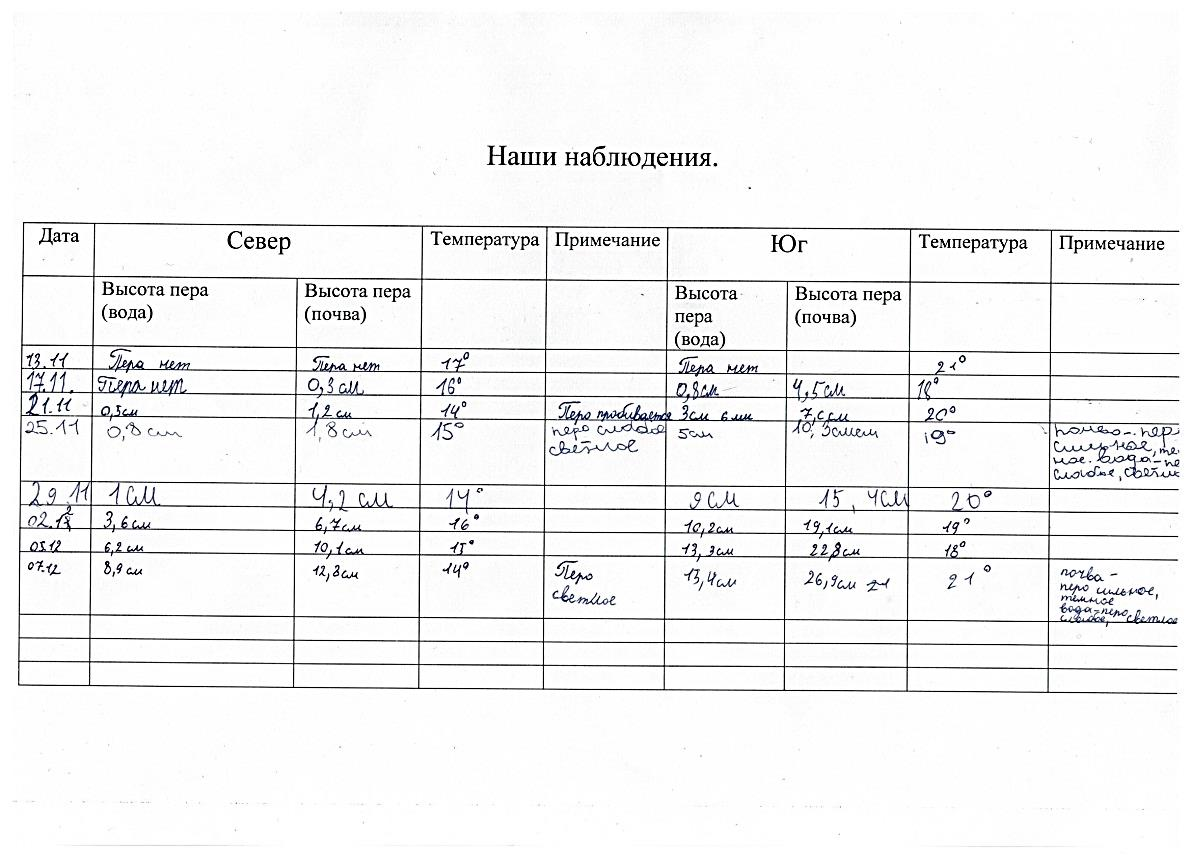 Наши наблюдения.
Дата Север Температура Примечание Юг Температура Примечание
Высота пера (вода) Высота пера (почва) Высота пера (вода) Высота пера (почва)
13.11 Пера нет Пера нет 17° Пера нет 21°
17.11. Пера нет 0,3 см 16° 0,8см 4,5 см 18°
21.11 0,5см 1,2 см 14° Перо пробивается 3см 6 мм 20°
25.11 0,8 см 1,8 см 15° перо слабое светлое 5см 19° перо сильное, вода слабое,
29.11 1 см 4,2 см 14° 9 см 15,4см 20°
02.12 3,6см 6,7см 16° 10,2см 19,1см 19°
05.12 6,2 см 10,1см 15° 13,3см 22,8см 18°
07.12 8,9 см 12,8см 14° Перо светлое 13,4см 26,9см 21° почва - перо сильное, тёмное вода-перо слабое, светлое